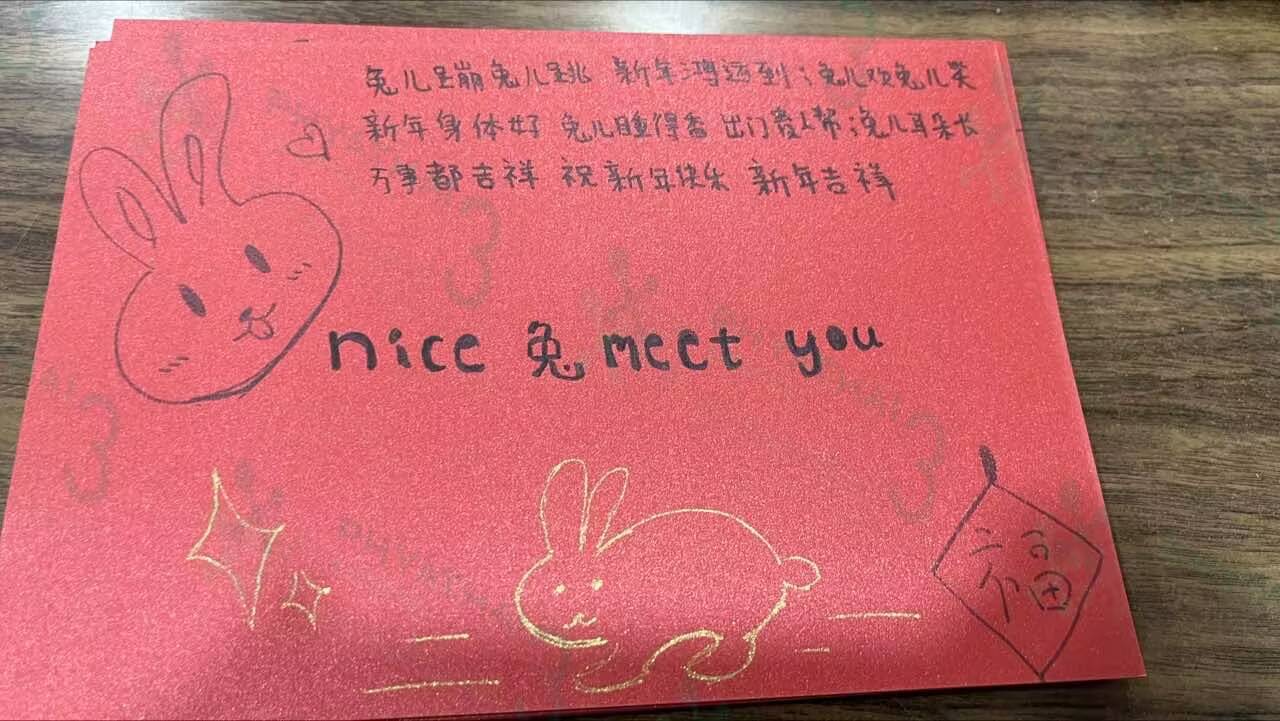 兔儿蹦兔儿跳 新年鸿运到;兔儿欢兔儿笑
新年身体好 兔儿睡得香 出门贵人帮;兔儿耳朵长
万事都吉祥 祝新年快乐 新年吉祥
nice 兔 meet you
福